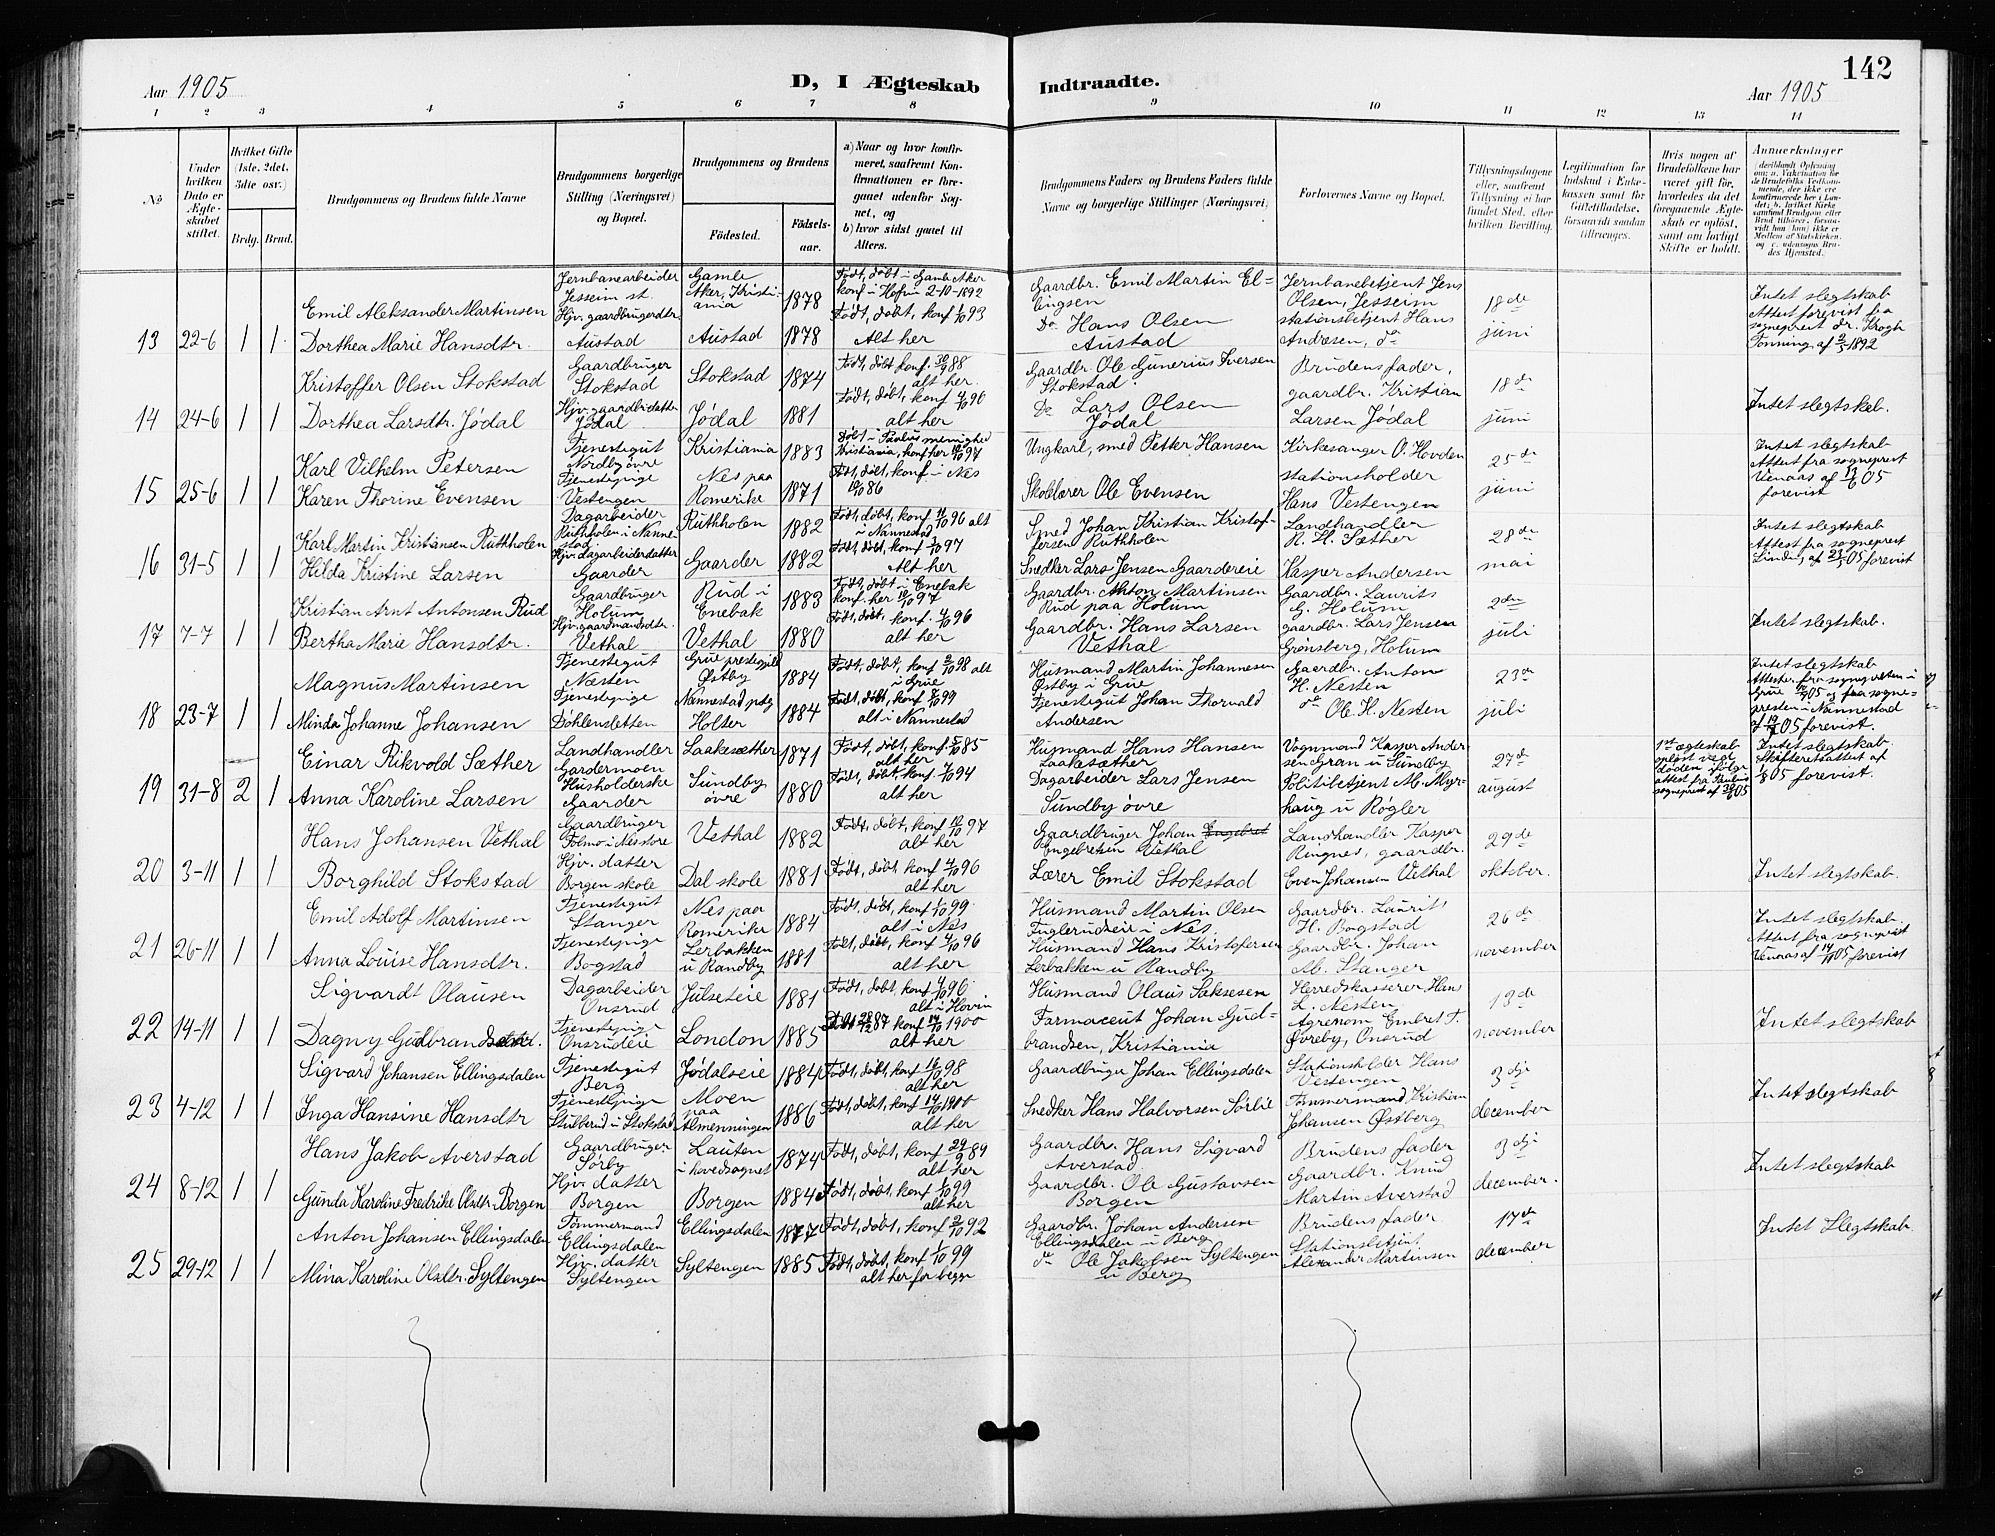 142
Aar 1905
D, I Ægteskab
Indtraadte.
Aar 1905
1 2 3 4 5 6 7 8 9 10 11 12 13 14
No
Under hvilken Dato er Ægteskabet stiftet.
Hvilket Gifte (1ste, 2det, 3die osv.)
Brdg. Brud.
Brudgommens og Brudens fulde Navne
Brudgommens borgerlige Stilling (Næringsvei) og Bopæl.
Brudgommens og Brudens
Fødested.
Fødselsaar.
a) Naar og hvor konfirmeret, saafremt Konfirmationen er foregaaet udenfor Sognet, og
b) hvor sidst gaaet til Alters.
Brudgommens Faders og Brudens Faders fulde Navne og borgerlige Stillinger (Næringsvei)
Forlovernes Navne og Bopæl.
Tillysningsdagene eller, saafremt Tillysning ei har fundet Sted, efter hvilken Bevilling.
Legitimation for Indskud i Enkekassen samt for Giftetilladelse, forsaavidt saadan tiltrænges.
Hvis nogen af Brudefolkene har været gift før, hvorledes da det foregaaende Ægteskab er opløst, samt om lovligt Skifte er holdt.
Anmærkninger
Emil Aleksander Martinsen Jernbanearbeider Jesseim st. Gamle Aker, Kristiania 1878 Født, døbt i Gamle Aker konf. i Hofvin 2-10-1892 Gaardbr. Emil Martin Ellingsen Jernbanebetjent Jens Olsen, Jesseim 18de
13 22-6 1 1 Dorthea Marie Hansdtr. Hjv. gaardbrugerdtr. Austad Austad 1878 Født, døbt, konf 1/10 93 Alt her Do Hans Olsen Austad stationsbetjent Hans Andresen, do juni Intet slegtskab Attest forevist fra sogneprest dr. Krogh Tonning af 2/5 1892
Kristoffer Olsen Stokstad Gaardbruger Stokstad Stokstad 1874 Født, døbt konf. 30/9 88 alt her. Gaardbr. Ole Gunerius Iversen Stokstad Brudens fader, 18de
14 24-6 1 1 Dorthea Larsdtr. Jødal Hjv. gaardbr. datter Jødal Jødal 1881 Født, døbt, konf 4/10 96 alt her Do Lars Olsen Jødal gaardbr. Kristian Larsen Jødal juni Intet slegtskab.
Karl Vilhelm Petersen Tjenestegut Nordby øvre Kristiania 1883 Døbt i Paulus menighed Kristiania, konf her 10/10 97 Ungkarl, smed Petter Hansen Kirkesanger O. Hovden 25de
15 25-6 1 1 Karen Thorine Evensen Tjenestepige Vestengen Nes paa Romerike 1871 Født, døbt, konf. i Nes 10/10 86 Skolelærer Ole Evensen stationsholder Hans Vestengen juni Intet slegtskab Attest fra sogneprest Venaas af 13/6 05 forevist
Karl Martin Kristiansen Ruthholen Dagarbeider Ruthholen i Nannestad Ruthholen 1882 Født, døbt, konf 11/10 96 alt i Nannestad Smed Johan Kristian Kristoffersen Ruthholen Landhandler R. H. Sæther 28de
16 31-5 1 1 Hilda Kristine Larsen Hjv. dagarbeiderdatter Gaarder Gaarder 1882 Født døbt, konf 3/10 97 Alt her Snedker Lars Jensen Gaardereie Kasper Andersen mai Intet slegtskab Attest fra sogneprest Linding af 23/5 05 forevist
Kristian Arnt Antonsen Rud Gaardbruger Holum Rud i Enebak 1883 Født, døbt i Enebak konf. her 10/10 97 Gaardbr. Anton Martinsen Rud paa Holum Gaardbr. Laurits G. Holum 2den
17 7-7 1 1 Bertha Marie Hansdtr. Hjv. gaardmandsdtr. Vethal Vethal 1880 Født, døbt, konf. 4/10 96 alt her Gaardbr. Hans Larsen Vethal gaardbr. Lars Jensen Grønsberg, Holum juli Intet slegtskab.
Magnus Martinsen Tjenestegut Næsten Grue prestegjeld Østby 1884 Født, døbt, konf 2/10 98 alt i Grue Husmand Martin Johannesen Østby i Grue Gaardbr. Anton H. Nesten 23de
18 23-7 1 1 Minda Johanne Johansen Tjenestepige Døhlensletten Nannestad pstg Holter 1884 Født, døbt, konf 8/10 99 alt i Nannestad Tjenestegut Johan Thorvald Andersen do Ole H. Nesten juli Intet slegtskab
Einar Rikvold Sæther Landhandler Gardermoen Laakesæther 1871 Født, døbt, konf. 5/10 85 alt her Husmand Hans Hansen Laakesæther Vognmand Kasper Andersen Gran u Sundby 27de
19 31-8 2 1 Anna Karoline Larsen Husholderske Gaarder Sundby øvre 1880 Født, døbt, konf 7/10 94 alt her Dagarbeider Lars Jensen Sundby øvre Politibetjent M. Myrhaug u Røgler august 1st ægteskab opløst ved døden ifølge attest fra Paulus sogneprest af 30/6 05 Intet slegtskab. Skifteretsattest af 05 forevist.
Hans Johansen Vethal Gaardbruger Vethal 1882 Født, døbt, konf 10/10 97 alt her Gaardbruger Johan Engebret Engebretsen Vethal Landhandler Kasper Ringnes, gaardbr. 29de
20 3-11 1 1 Borghild Stokstad Hjv. datter Borgen skole Dal skole 1881 Født, døbt, konf 4/10 96 alt her Lærer Emil Stokstad Even Johansen Vethal oktober. Intet slegtskab.
Emil Adolf Martinsen Tjenestegut Stanger Nes paa Romerike 1884 Født, døbt, konf 1/10 99. alt i Nes Husmand Martin Olsen Fuglerudeie i Nes. Gaardbr. Laurits H. Bogstad 26de
21 26-11 1 1 Anna Louise Hansdtr. Tjenestepige Bogstad Lerbakken u Randby 1881 Født, døbt, konf 4/10 96 alt her Husmand Hans Kristofersen Lerbakken u Randby Gaardbr. Johan M. Stanger november Intet slegtskab. Attest fra sogneprest Venaas af 14/11 05 forevist
Sigvardt Olausen Dagarbeider Onsrud Julseteie 1881 Født, døbt, konf 4/10 96. alt i Hovin Husmand Olaus Saksesen Herredskasserer, Hans L. Nesten 13de
22 14-11 1 1 Dagny Gudbrandsdtr. Tjenestepige Onsrudeie London 1885 87 konf 14/10 1900 alt her Farmaceut Johan Gudbrandsen, Kristiania Agronom Embret T. Øvreby, Onsrud november Intet slegtskab
Sigvard Johansen Ellingsdalen Tjenestegut Berg Jødalseie 1884 Født, døbt, konf 16/10 98 alt her Gaardbruger Johan Ellingsdalen Stationsholder Hans Vestengen 3dje
23 4-12 1 1 Inga Hansine Hansdtr Tjenestepige Stubberud u Stokstad Moen paa Almenningen 1886 Født, døbt, konf 14/10 1900 alt her Snedker Hans Halvorsen Sørlie Tømmermand Kristian Johansen Østberg december Intet slegtskab
Hans Jakob Averstad Gaardbruger Sørby Lauten i hovedsognet 1874 Født, døbt, konf 29/9 89 alt her Gaardbr. Hans Sigvard Averstad Brudens fader 3dje
24 8-12 1 1 Gunda Karoline Fredrike Olsdtr. Borgen Hjv. datter Borgen Borgen 1884 Født, døbt, konf 1/10 99 alt her Gaardbr. Ole Gustavsen Borgen Gaardbr. Knud Martin Averstad december. Intet slegtskab
Anton Johansen Ellingsdalen Tømmermand Ellingsdalen Ellingsdalen 1877 Født, døbt, konf 2/10 92 Gaardbr. Johan Andersen Ellingsdalen u Berg Brudens fader 17de
25 29-12 1 1 Mina Karoline Olsdtr. Syltengen Hjv. datter Syltengen Syltengen 1885 Født, døbt, konf 1/10 99 alt her for begge do Ole Jakobsen Syltengen u Berg Stationsbetjent Alexander Martinsen december Intet Slegtskab.